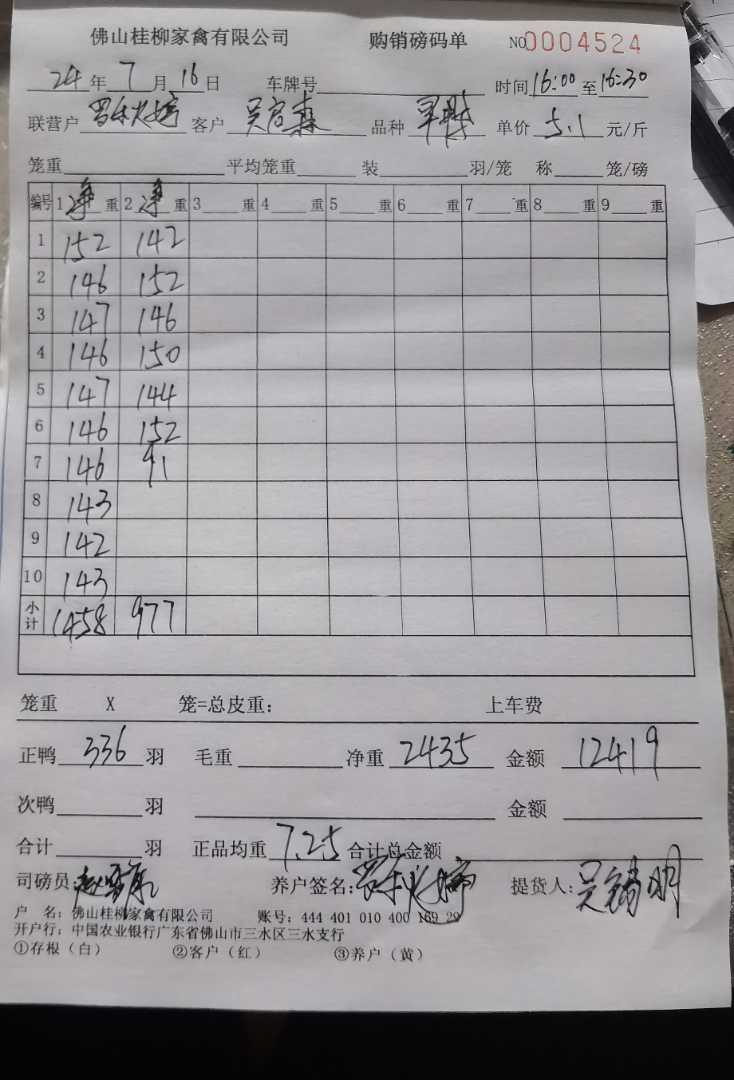 佛山桂柳家禽有限公司 购销磅码单 NO0004524
24年7月16日 车牌号 时间16:00至16:30
联营户 客户 品种 单价5.1元/斤
笼重 平均笼重 装 羽/笼 称 笼/磅
编号 1净重 2净重 3 重 4 重 5 重 6 重 7 重 8 重 9 重
1 152 142
2 146 152
3 147 146
4 146 150
5 147 144
6 146 152
7 146 91
8 143
9 142
10 143
小计 1458 977
笼重 X 笼=总皮重: 上车费
正鸭336羽 毛重 净重2435 金额12419
次鸭 羽 金额
合计 羽 正品均重7.25 合计总金额
司磅员: 养户签名: 提货人:吴锦明
户 名: 佛山桂柳家禽有限公司 账号: 444 401 010 400 169 29
开户行: 中国农业银行广东省佛山市三水区三水支行
①存根(白) ②客户(红) ③养户(黄)